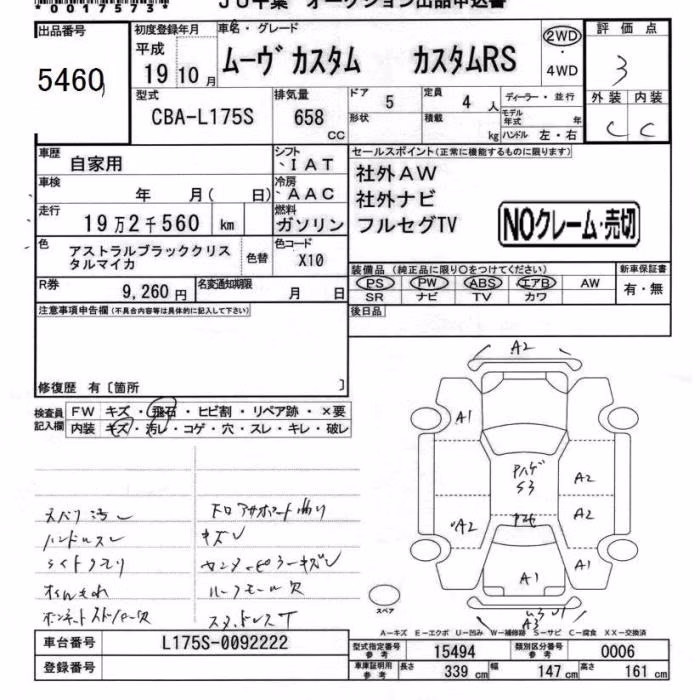 *0017573*
JU千葉 オークション出品申込書
出品番号
5460
初度登録年月
平成
19 10 月
車名・グレード
ムーヴ カスタム カスタムRS
2WD
・
4WD
評価点
3
外装 内装
C C
型式
CBA-L175S
排気量
658
CC
ドア 5
定員 4 人
ディーラー・並行
形状
積載 kg
モデル年式 年
ハンドル 左・右
車歴
自家用
シフト
IAT
車検
年 月( 日)
冷房
AAC
走行
19万2千560 km
燃料
ガソリン
色
アストラルブラッククリスタルマイカ
色替
色コード
X10
R券
9,260 円
名変通知期限
月 日
セールスポイント(正常に機能するものに限ります)
社外AW
社外ナビ
フルセグTV
NOクレーム・売切
装備品(純正品に限り○をつけてください)
PS PW ABS エアB AW
SR ナビ TV カワ
新車保証書
有・無
後日品
注意事項申告欄(不具合内容等は具体的に記入して下さい)
修復歴 有〔箇所 〕
検査員記入欄
FW キズ・飛石・ヒビ割・リペア跡・×要
内装 キズ・汚レ・コゲ・穴・スレ・キレ・破レ
ハンドルスレ
ライトクモリ
キズレ
A2
A1
A2
A2
A2
S3
A1
A1
A3
スペア
A−キズ E−エクボ U−凹み W−補修跡 S−サビ C−腐食 XX−交換済
車台番号
L175S-0092222
登録番号
型式指定番号 参考
15494
類別区分番号 参考
0006
車庫証明用 参考
長さ 339 cm
幅 147 cm
高さ 161 cm